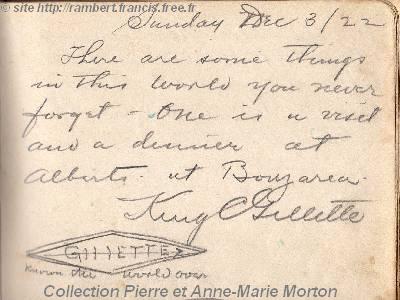 © site http://rambert.francis.free.fr
Sunday Dec 3/22
There are some things
in this world you never
forget - One is a visit
and a dinner at
Alberts - at Bouzarea -
King C Gillette
GILLETTE
Known the world over
Collection Pierre et Anne-Marie Morton